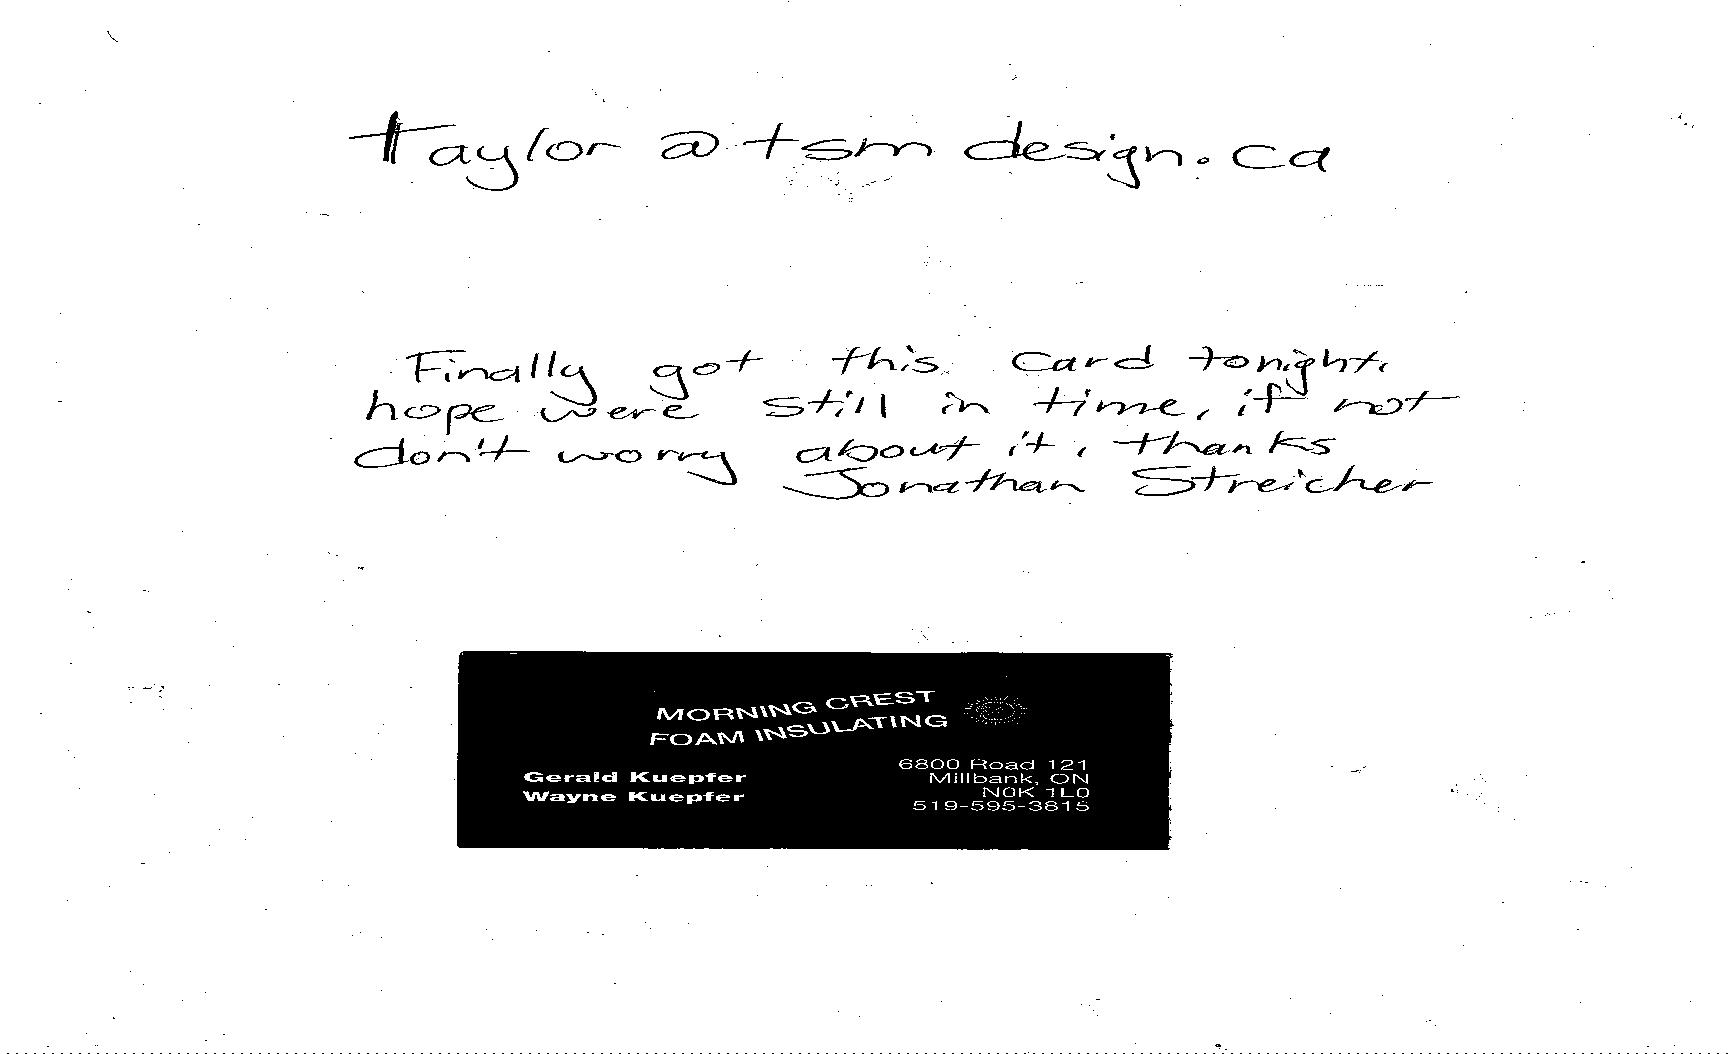 taylor@tsmdesign.ca
Finally got this card tonight.
hope were still in time, if not
don't worry about it, thanks
Jonathan Streicher
MORNING CREST
FOAM INSULATING
Gerald Kuepfer
Wayne Kuepfer
6800 Road 121
Millbank, ON
N0K 1L0
519-595-3815